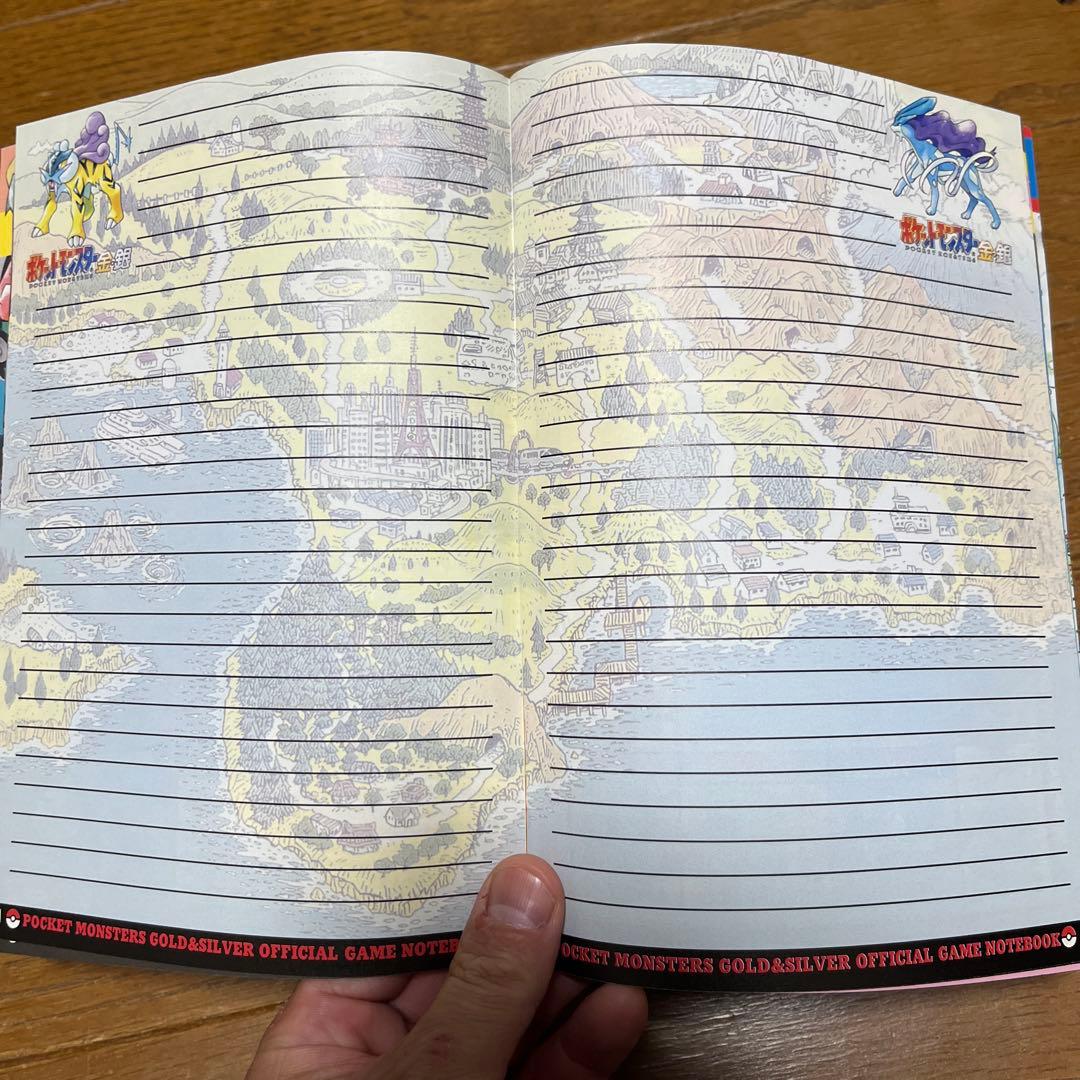 ポケットモンスター金・銀
POCKET MONSTERS
POCKET MONSTERS GOLD&SILVER OFFICIAL GAME
ポケットモンスター金・銀
POCKET MONSTERS
POCKET MONSTERS GOLD&SILVER OFFICIAL GAME NOTEBOOK